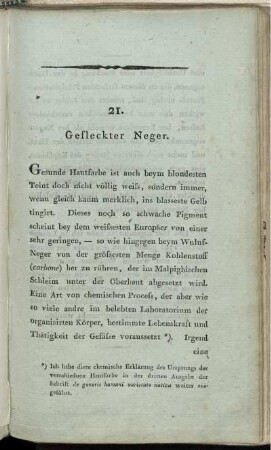 21.
Gefleckter Neger.
Gesunde Hautfarbe ist auch beym blondesten
Teint doch nicht völlig weiſs, sondern immer,
wenn gleich kaum merklich, ins blasseste Gelb
tingirt. Dieses noch so schwache Pigment
scheint bey dem weiſsesten Europäer von einer
sehr geringen, — so wie hingegen beym
Neger von der gröſsesten Menge Kohlenstoff
(carbone) her zu rühren, der im Malpighischen
Schleim unter der Oberhaut abgesetzt wird.
Eine Art von chemischen Proceſs, der aber wie
so viele andre im belebten Laboratorium der
organisirten Körper, bestimmte Lebenskraft und
Thätigkeit der Gefäſse voraussetzt *). Irgend
eine
*) Ich habe diese chemische Erklärung des Ursprungs der
verschiednen Hautfarbe in der dritten Ausgabe der
Schrift de generis humani varietate nativa weiter aus-
geführt.